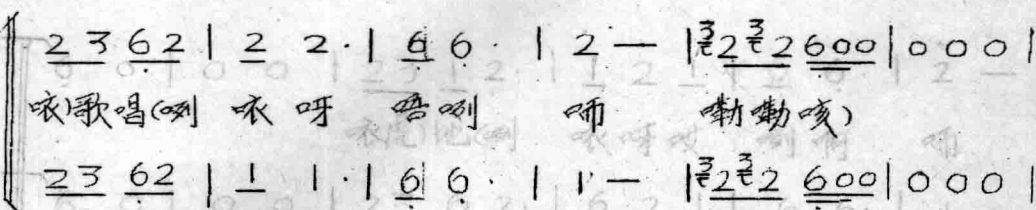 2 3 6 2 | 2 2 · | 6 6 · | 2 — | 3 2 3 2 6 0 0 | 0 0 0 |
咴)歌唱(咧 咴 呀 唔 咧 嗬 嘞 嘞 咳)
2 3 6 2 | 1 1 · | 6 6 · | 1 — | 3 2 3 2 6 0 0 | 0 0 0 |